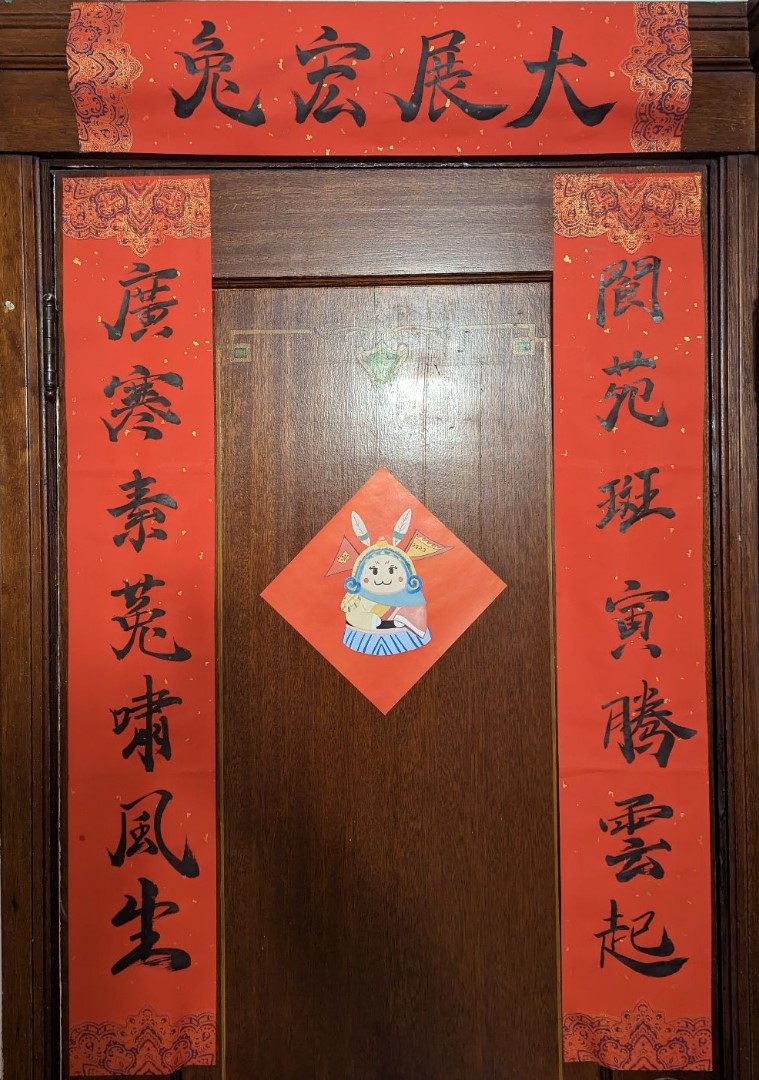 大展宏兔
閬苑斑寅騰雲起
廣寒素菟嘯風生
2023